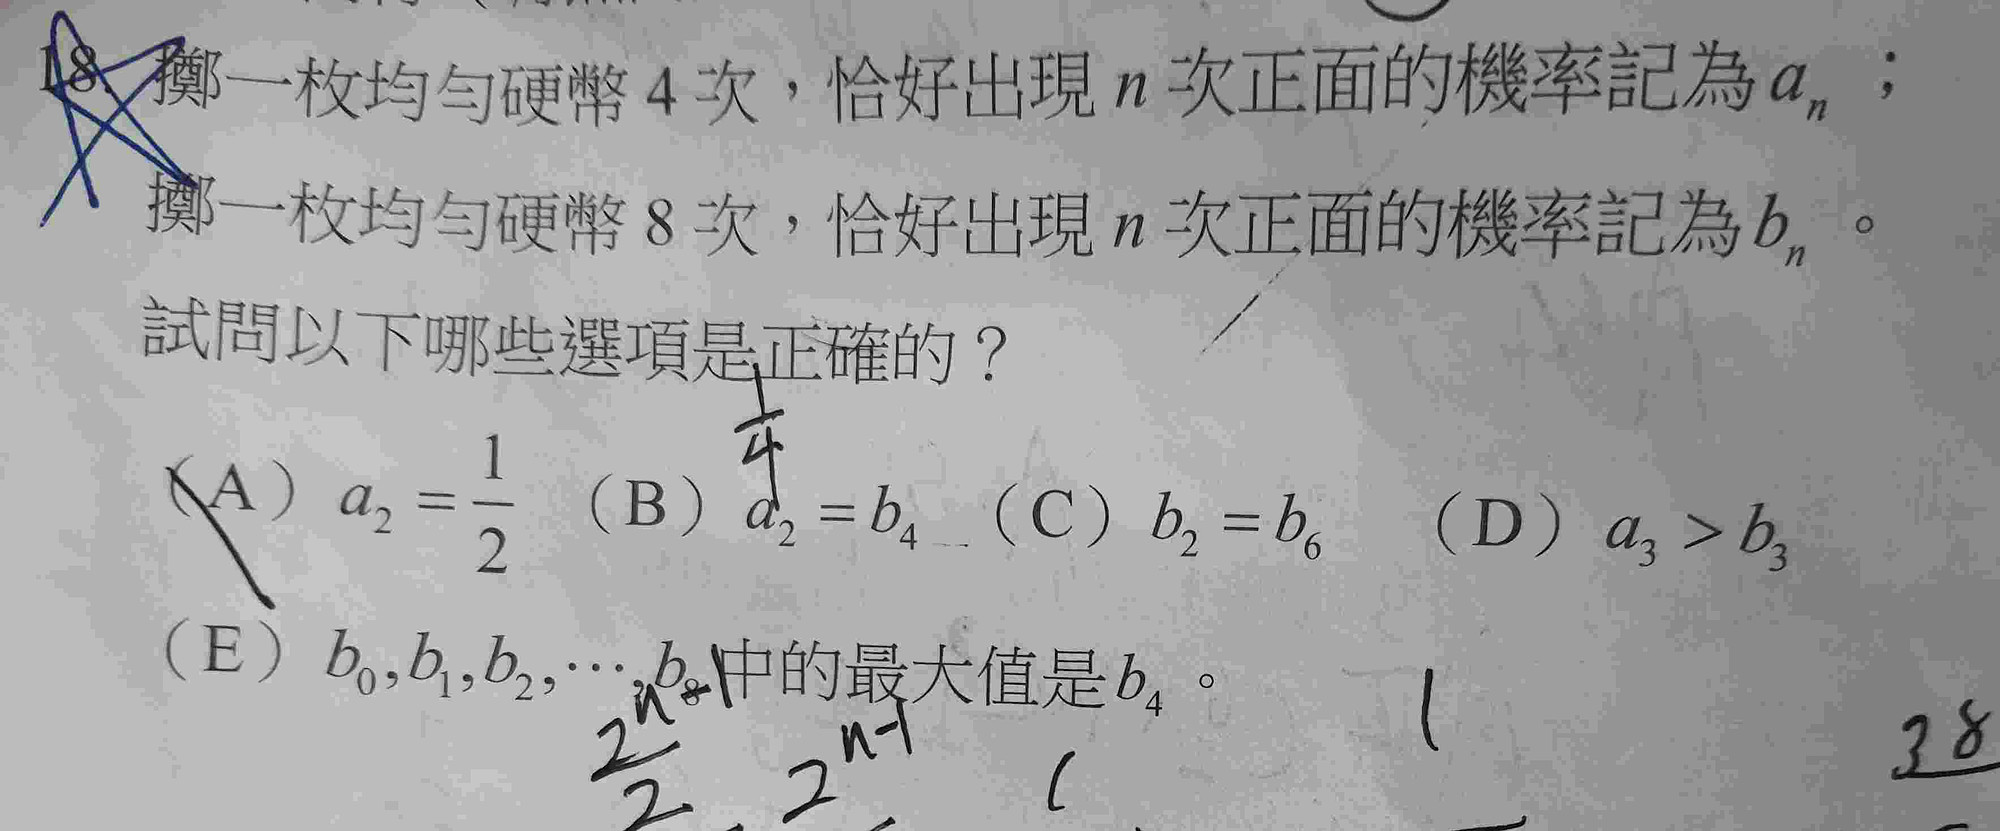 18. 擲一枚均勻硬幣 4 次，恰好出現 n 次正面的機率記為 aₙ；
擲一枚均勻硬幣 8 次，恰好出現 n 次正面的機率記為 bₙ。
試問以下哪些選項是正確的？
1/4
(A) a₂ = 1/2 (B) a₂ = b₄ (C) b₂ = b₆ (D) a₃ > b₃
(E) b₀, b₁, b₂, …, b₈ 中的最大值是 b₄。
2ⁿ⁻¹
38